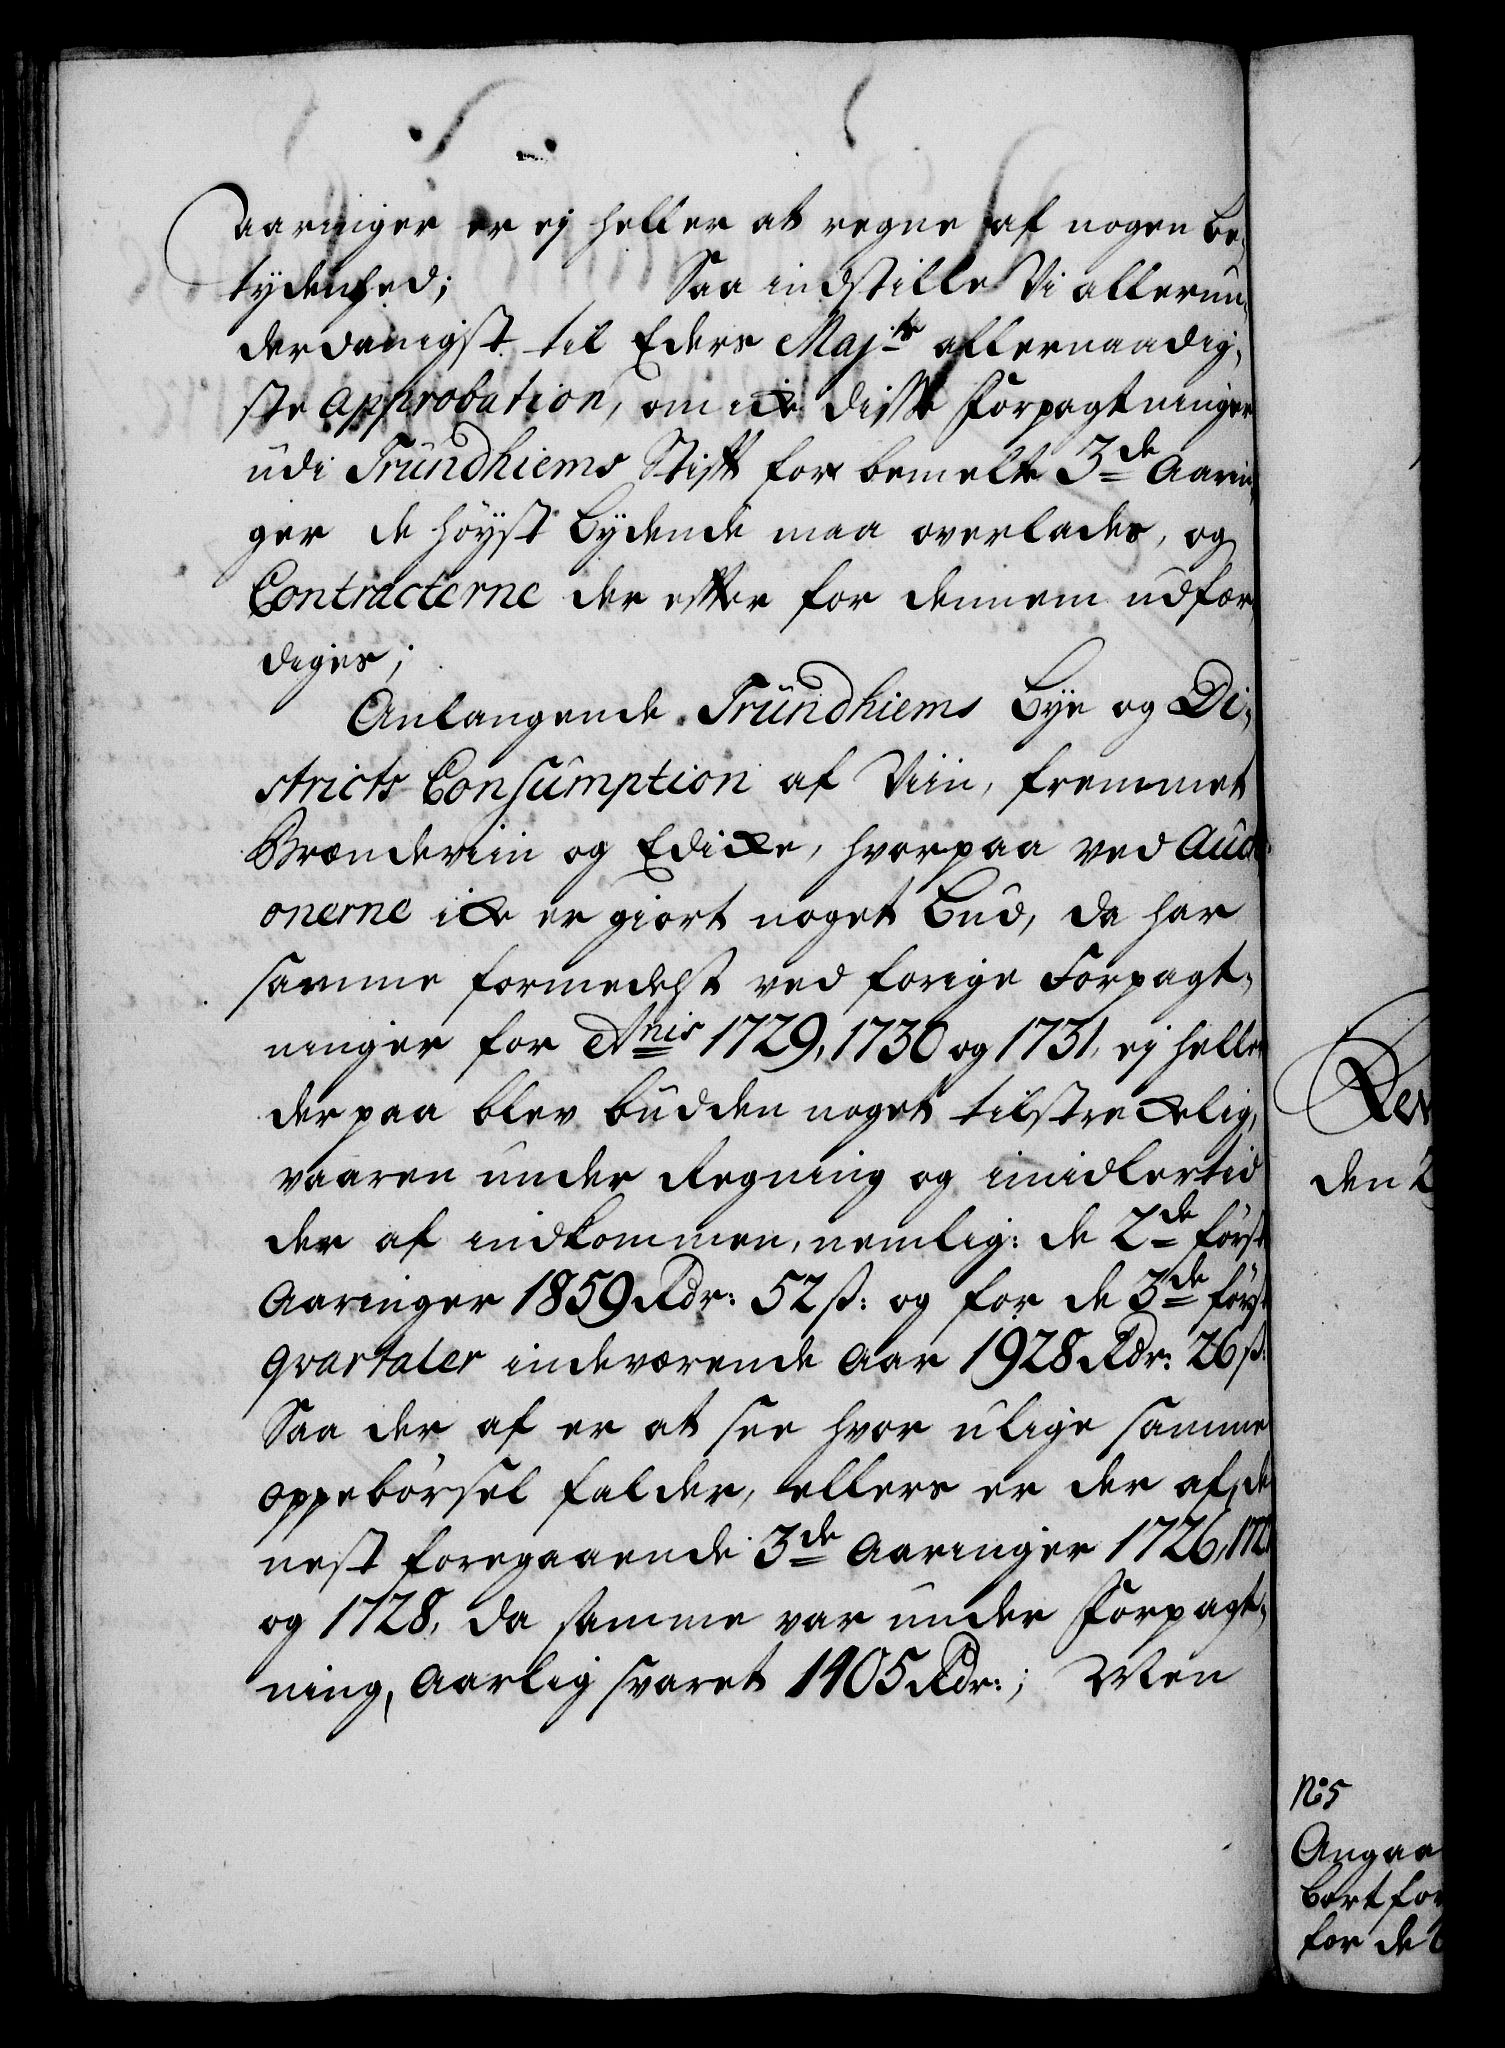 aaringer er ej heller at regne af nogen be-
tydenhed; Saa indstille Vi allerun-
derdanigst til Eders Maj:ts allernaadig-
ste approbation, om icke disse Forpagtninger
udi Trundhiems Stift for bemelte 3de Aarin-
ger de høyst bydende maa overlades, og
Contracterne der efter for dennem udfær
diges;
Anlangende Trundhiems Bye og Di-
stricts Consumption af Viin, fremmet
Brændeviin og Edicke, hvorpaa ved Aucti
onerne icke er giort noget Bud, da har
samme formedelst ved forige Forpagt-
ninger for Anis 1729, 1730 og 1731, ej heller
der paa blev budden noget tilstreckelig,
vaaren under Regning og imidlertid
der af indkommen, nemlig: de 2de først
Aaringer 1859 Rdr: 52 ß: og for de 3de først
Qvartaler indeværende Aar 1928 Rdr: 26 ß:
Saa der af er at see hvor ulige samme
oppebørsel falder, ellers er der af de
nest foregaaende 3de Aaringer 1726, 172
og 1728, da samme var under Forpagt-
ning, Aarlig svaret 1405 Rdr:; Men
Rev
den 2
No 5
Angaa
bortfor
for de